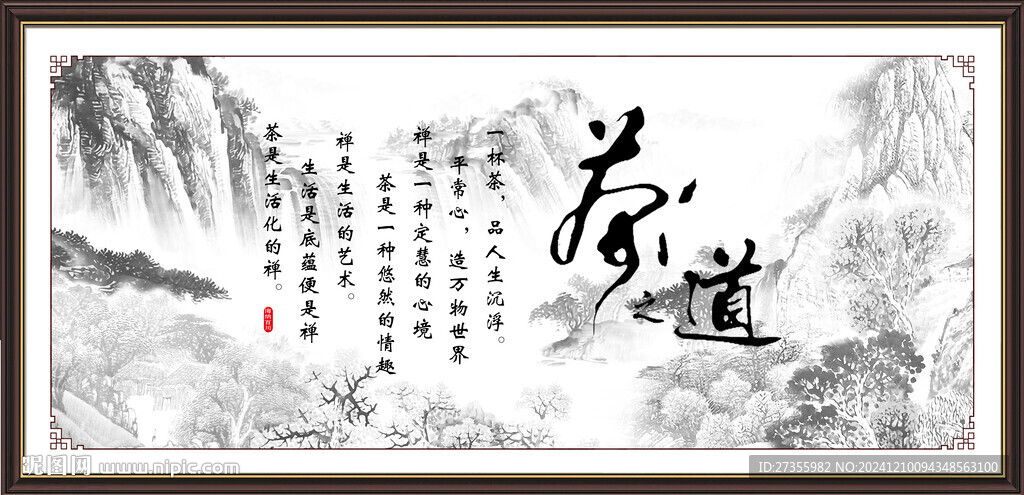 茶之道
一杯茶，品人生沉浮。
平常心，造万物世界
禅是一种定慧的心境
茶是一种悠然的情趣
禅是生活的艺术。
生活是底蕴便是禅
茶是生活化的禅。
海纳百川
昵图网 www.nipic.com
ID:27355982 NO:20241210094348563100